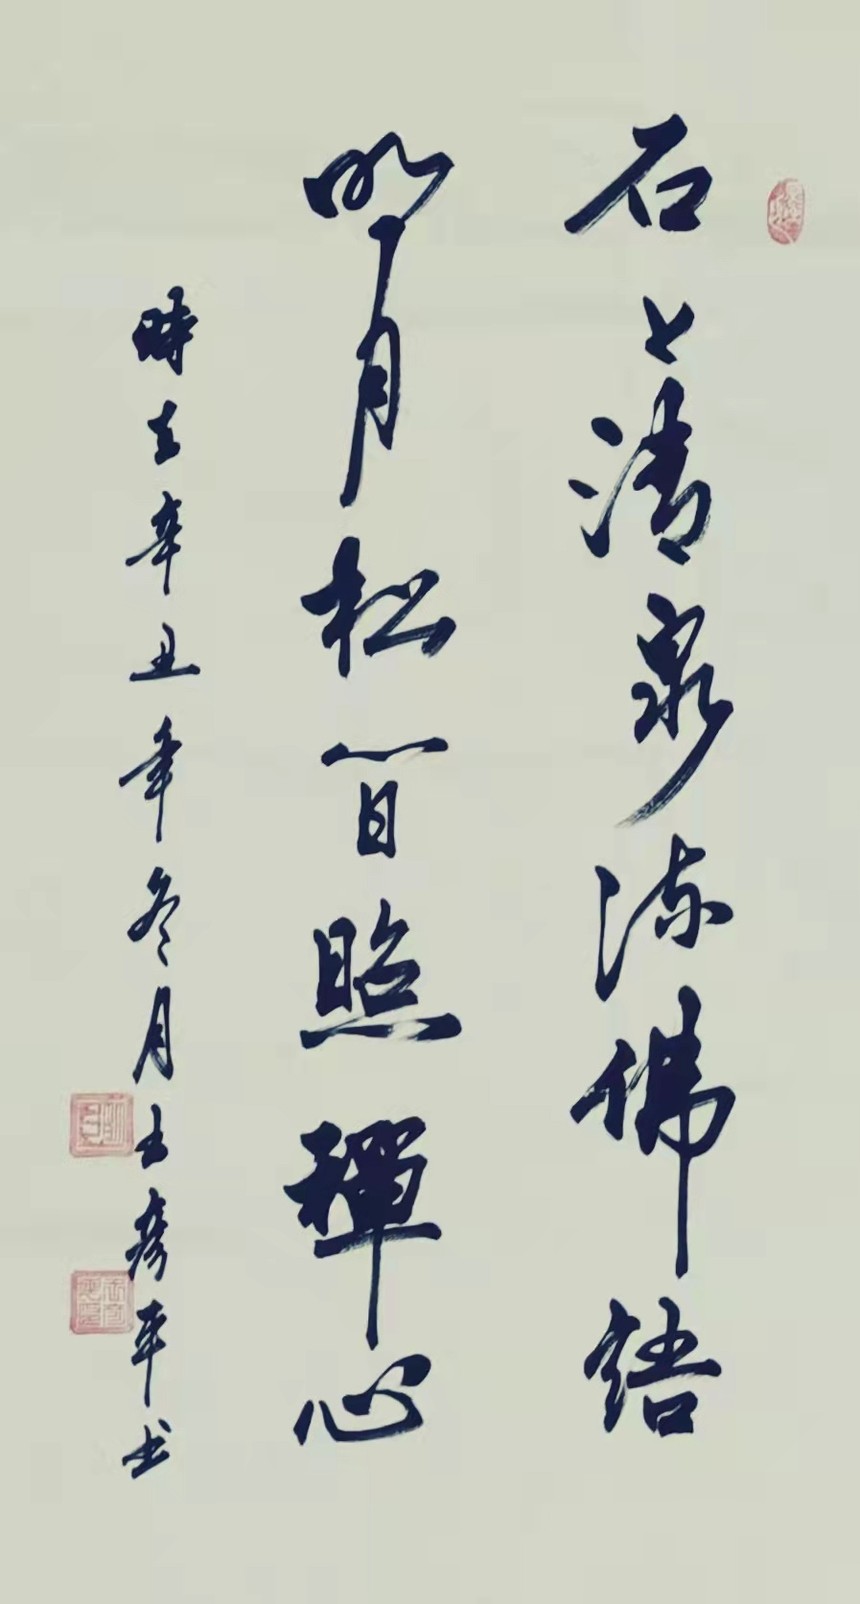 石上清泉流佛語
明月松間照禪心
時在辛丑年冬月王彥平书